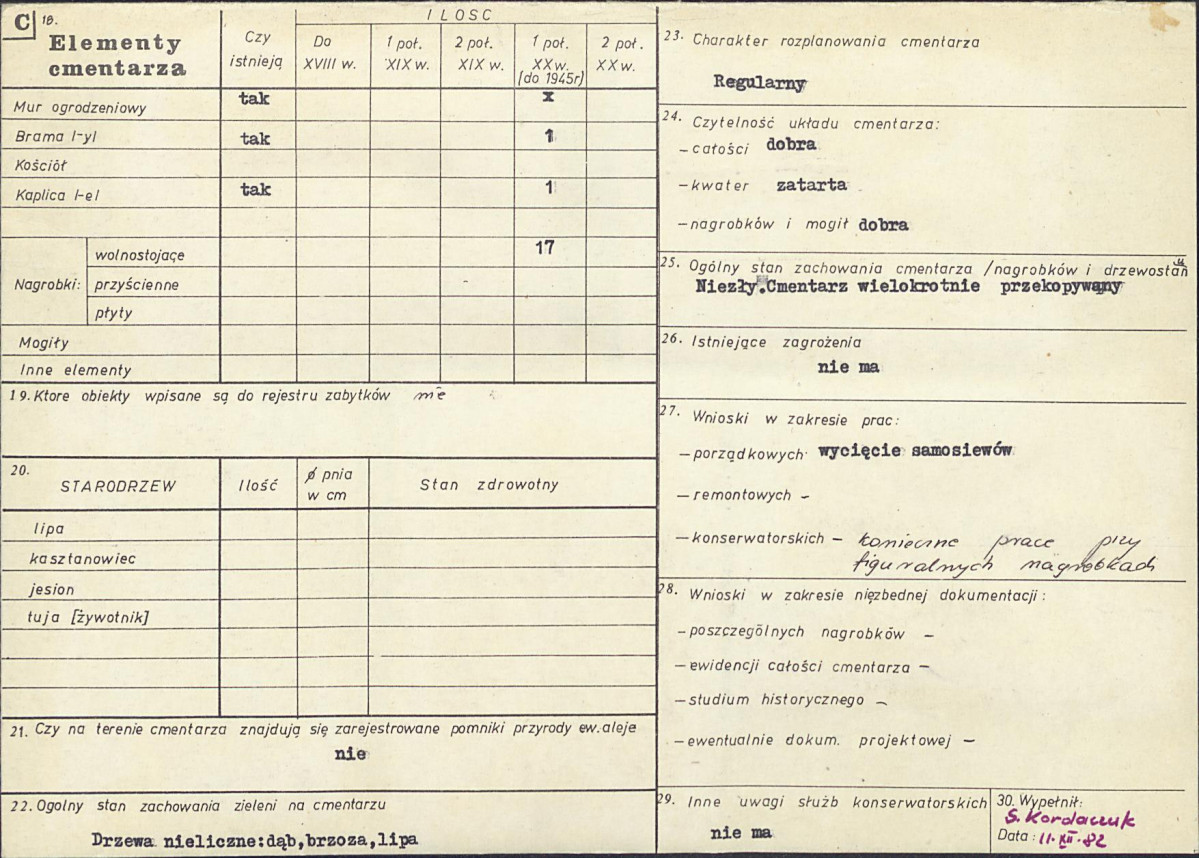 C 18.
Elementy
cmentarza
Czy
istnieją
I L O S C
Do
XVIII w.
1 poł.
XIX w.
2 poł.
XIX w.
1 poł.
XX w.
[do 1945r]
2 poł.
XX w.
Mur ogrodzeniowy tak x
Brama I-yI tak 1
Kościół
Kaplica I-eI tak 1
Nagrobki: wolnostojące 17
przyścienne
płyty
Mogiły
Inne elementy
19. Ktore obiekty wpisane są do rejestru zabytków nie
20.
STARODRZEW Ilość ∅ pnia
w cm Stan zdrowotny
lipa
kasztanowiec
jesion
tuja [żywotnik]
21. Czy na terenie cmentarza znajdują się zarejestrowane pomniki przyrody ew. aleje
nie
22. Ogolny stan zachowania zieleni na cmentarzu
Drzewa nieliczne:dąb,brzoza,lipa
23. Charakter rozplanowania cmentarza
Regularny
24. Czytelność układu cmentarza:
- całości dobra
- kwater zatarta
- nagrobków i mogił dobra
25. Ogólny stan zachowania cmentarza /nagrobków i drzewostan
Niezły.Cmentarz wielokrotnie przekopywany
26. Istniejące zagrożenia
nie ma
27. Wnioski w zakresie prac:
- porządkowych wycięcie samosiewów
- remontowych -
- konserwatorskich - konieczne prace przy
figuralnych nagrobkach
28. Wnioski w zakresie nięzbednej dokumentacji:
- poszczególnych nagrobków -
- ewidencji całości cmentarza -
- studium historycznego -
- ewentualnie dokum. projektowej -
29. Inne uwagi służb konserwatorskich
nie ma
30. Wypełnił:
S. Kordaczuk
Data: 11. XII. 82